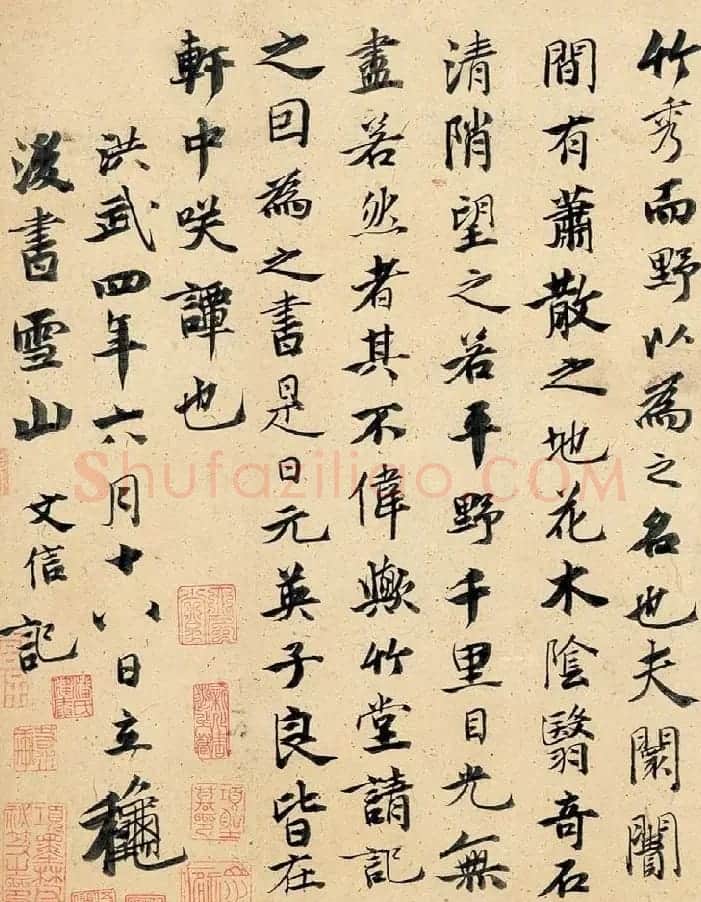 竹秀而野以為之名也夫闤闠
間有蕭散之地花木陰翳奇石
清陗望之若平野千里目光無
盡若然者其不偉歟竹堂請記
之囙為之書是日元英子良皆在
軒中咲譚也
洪武四年六月十八日立穐
後書雪山 文信記
Shufaziliao.COM